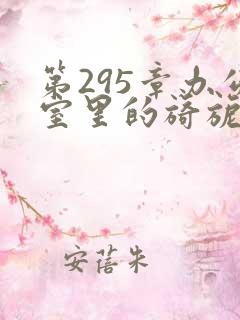 第295章办公
室里的旖旎
安蓓朱